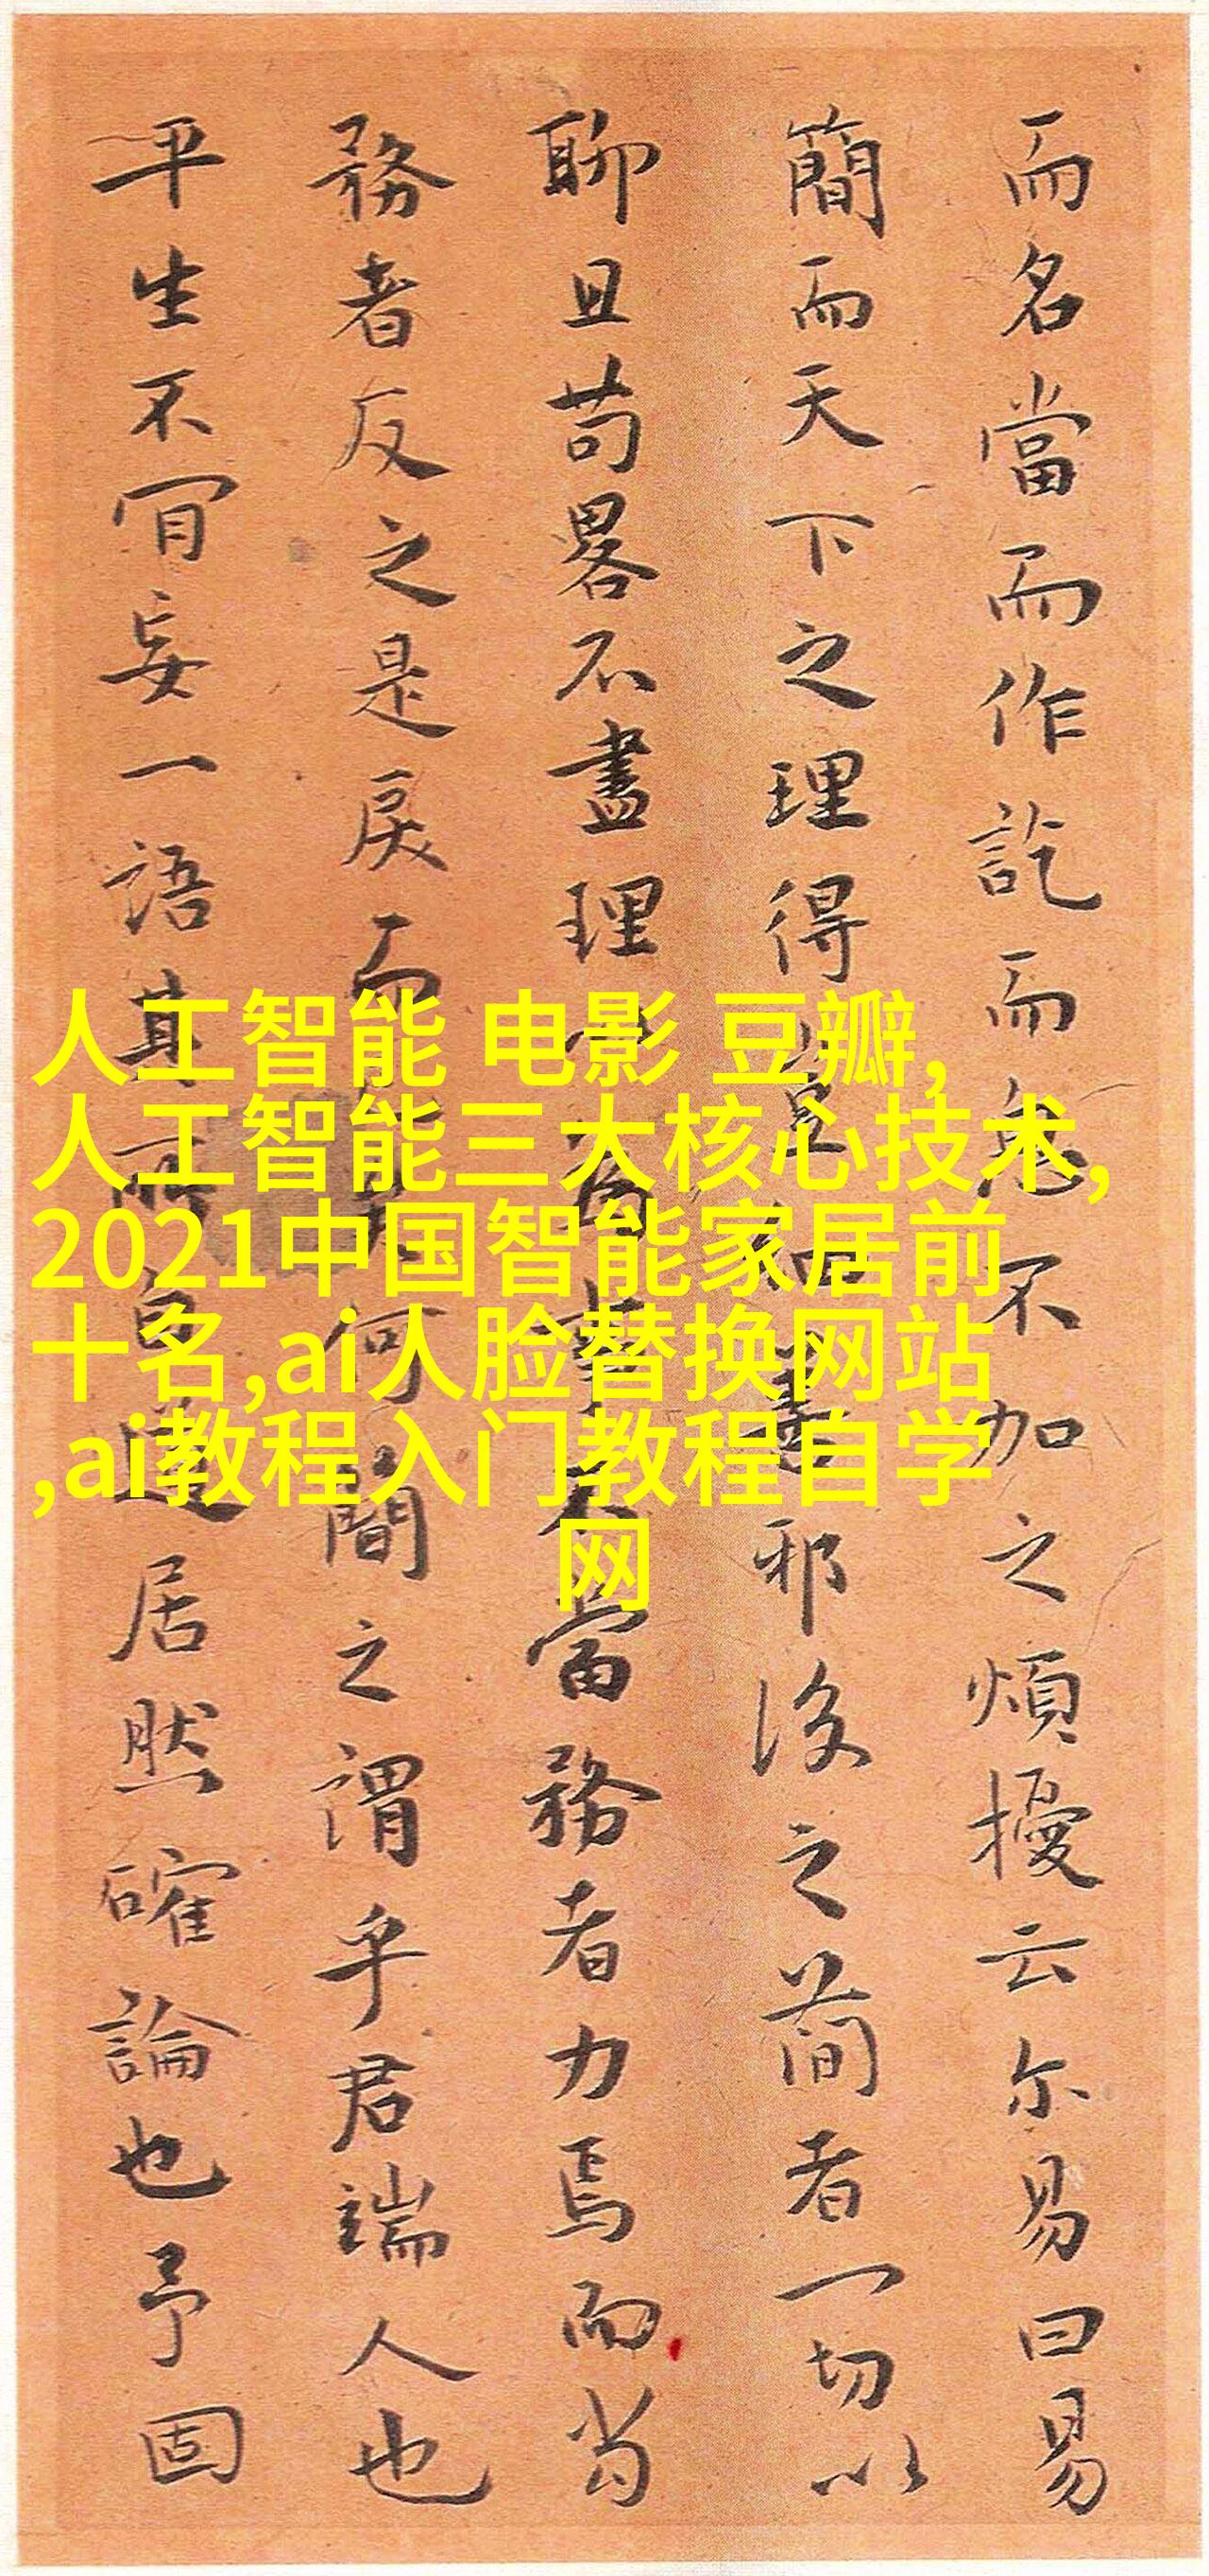 而名當而作訖而免不加之煩擾云尔易曰易
簡而天下之理得豈細盡邪後之簡者一切以
聊且苟畧不盡理當務者力焉而苟
務者反之是戾而何簡之謂乎君端人也
平生不肎妄一語其所自道居然確論也予固
人工智能 电影 豆瓣,
人工智能三大核心技术,
2021中国智能家居前
十名,ai人脸替换网站
,ai教程入门教程自学
网